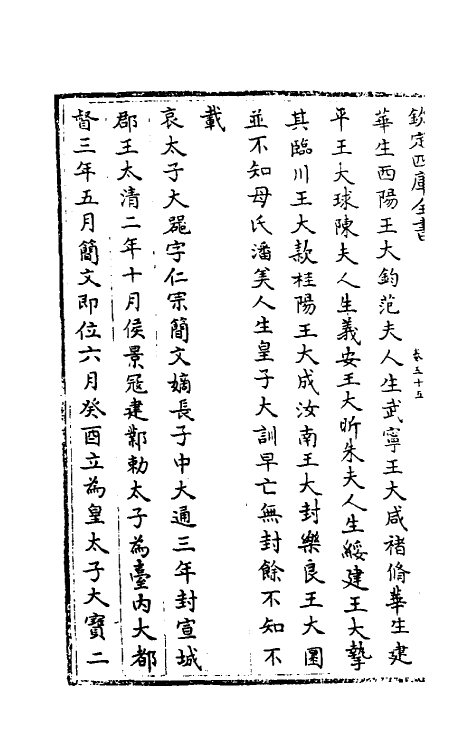 欽定四庫全書
卷五十五
華生西陽王大鈞范夫人生武寧王大威褚脩華生建
平王大球陳夫人生義安王大昕朱夫人生綏建王大摯
其臨川王大款桂陽王大成汝南王大封樂良王大圜
並不知母氏潘美人生皇子大訓早亡無封餘不知不
載
哀太子大器字仁宗簡文嫡長子中大通三年封宣城
郡王太清二年十月侯景冦建鄴勅太子為臺内大都
督三年五月簡文即位六月癸酉立為皇太子大寶二